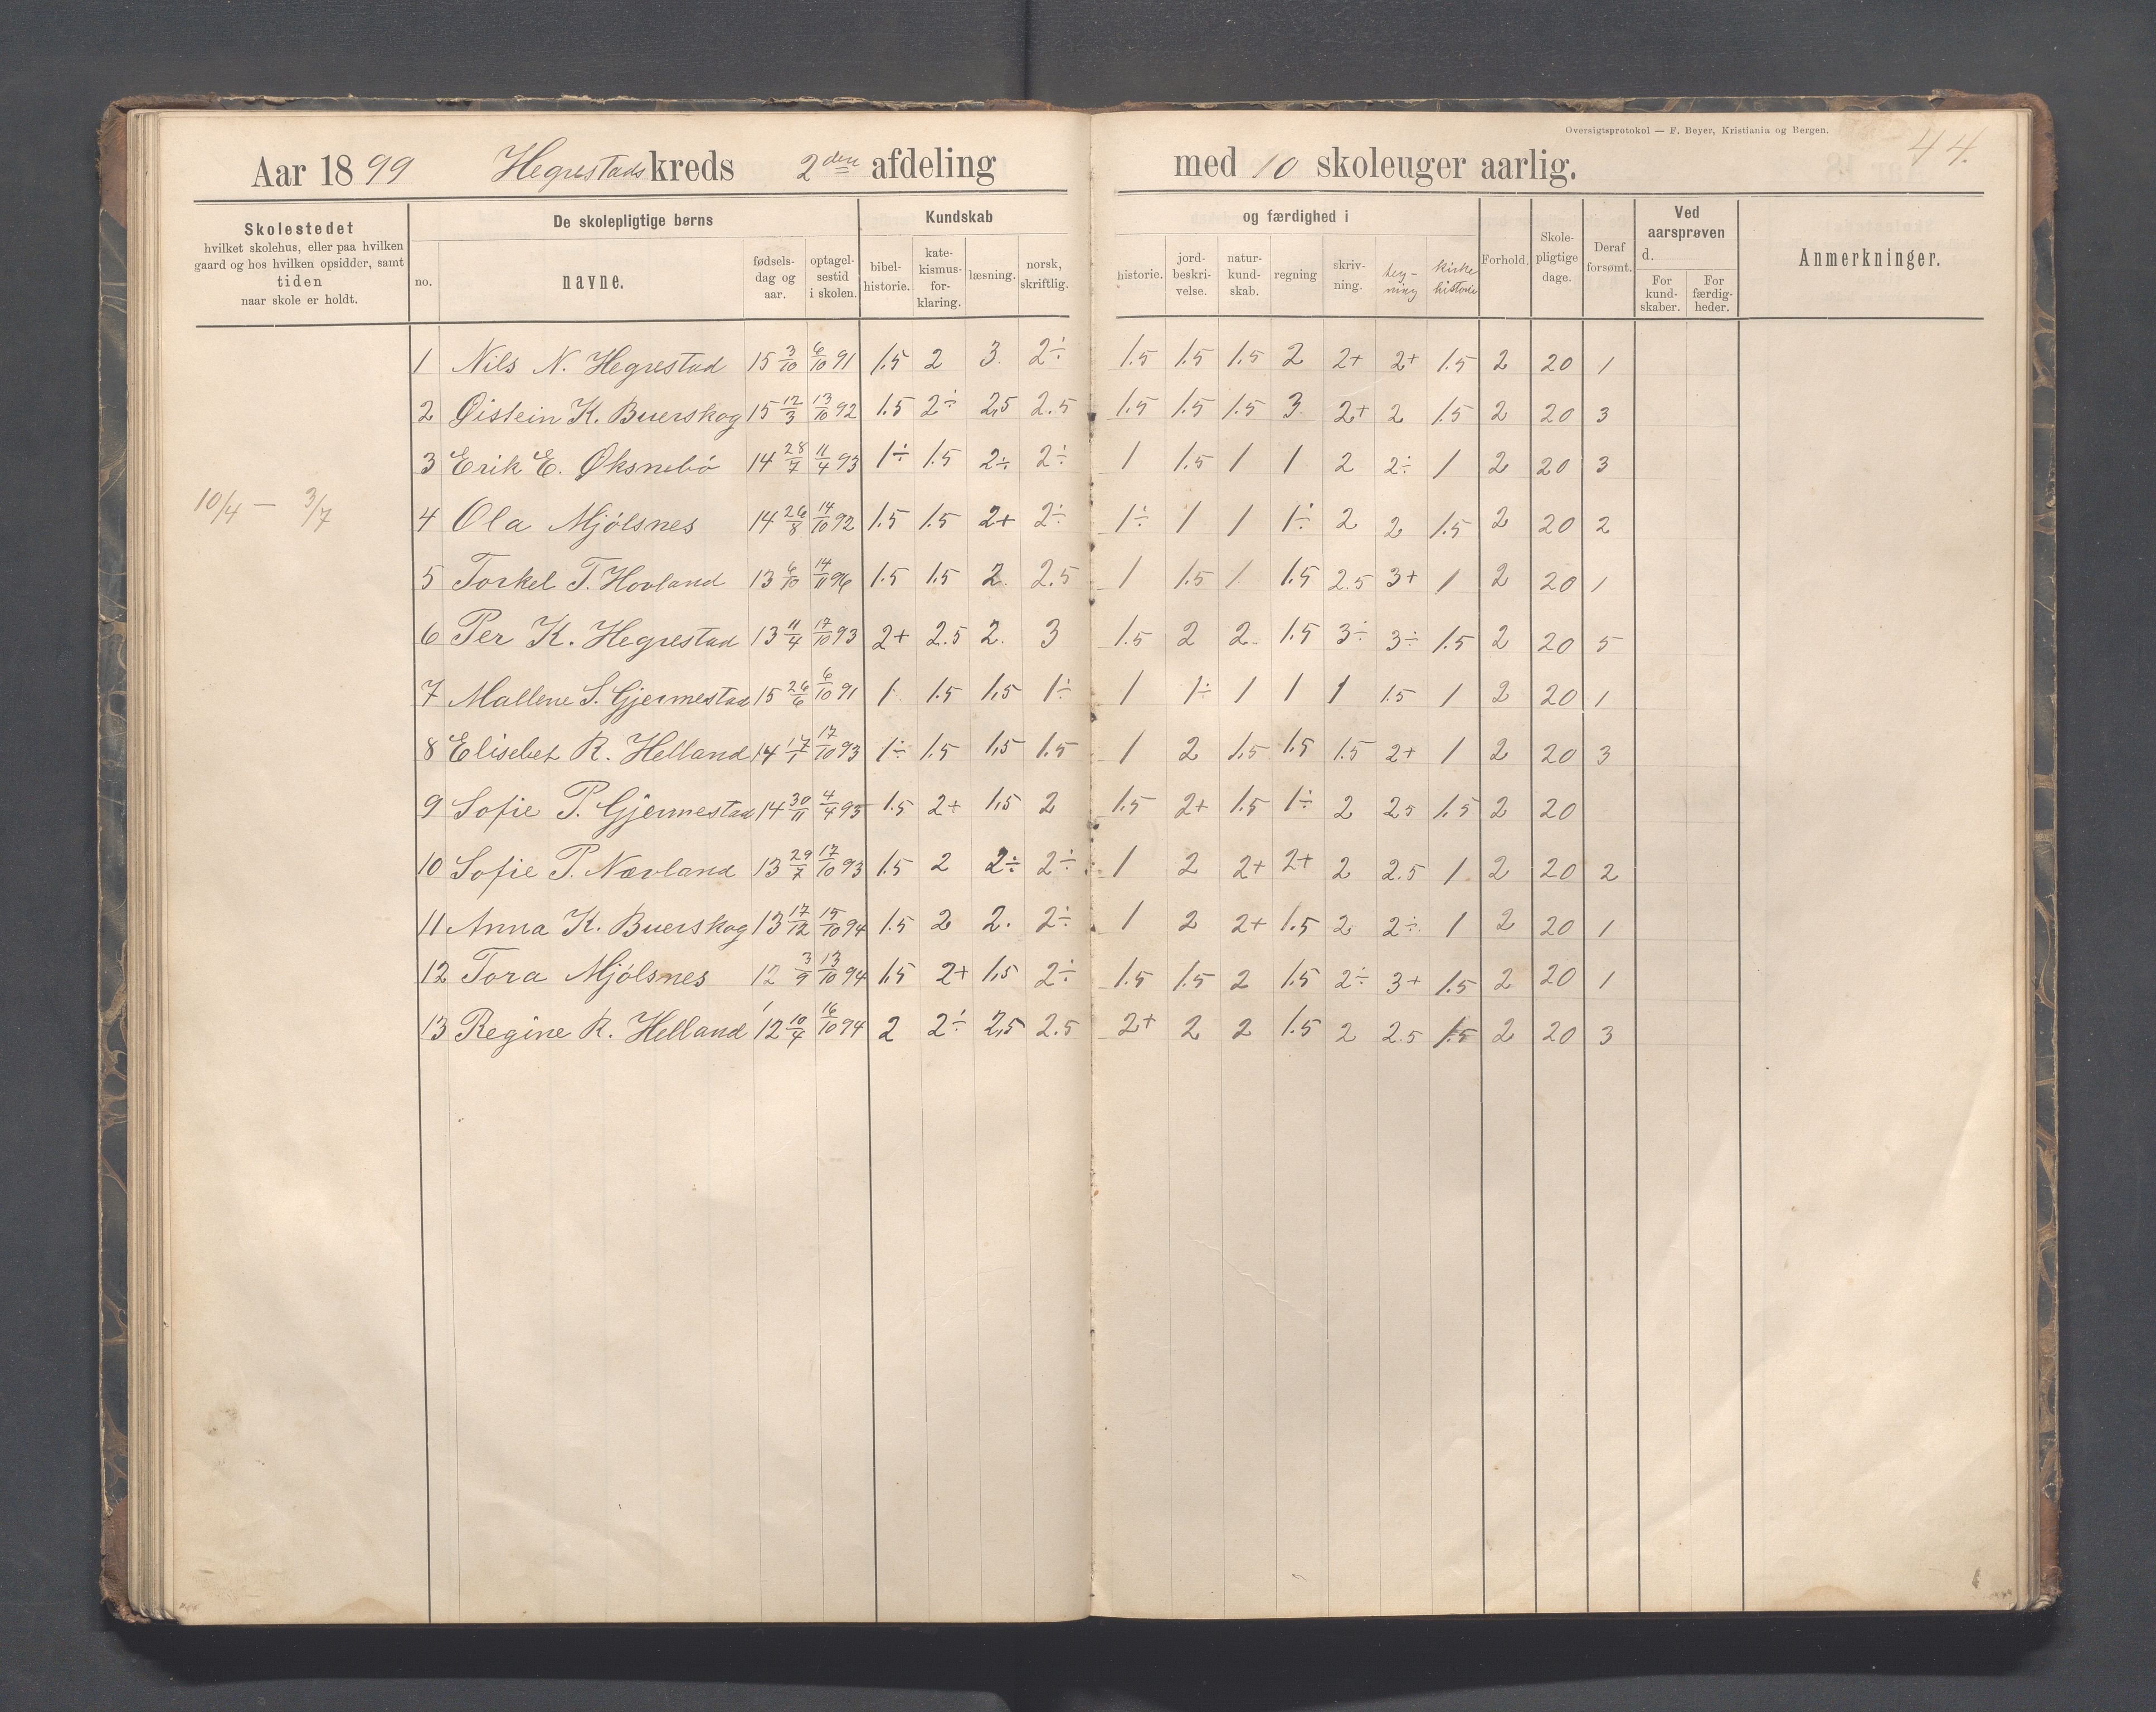 Oversigtsprotokol — F. Beyer, Kristiania og Bergen.
44.
Aar 1899 Hegrestads kreds 2den afdeling med 10 skoleuger aarlig.
Skolestedet
hvilket skolehus, eller paa hvilken
gaard og hos hvilken opsidder, samt
tiden
naar skole er holdt.
De skolepligtige børns
no.
navne.
fødsels-
dag og
aar.
optagel-
sestid
i skolen.
Kundskab
bibel-
historie.
kate-
kismus-
for-
klaring.
læsning.
norsk,
skriftlig.
og færdighed i
historie.
jord-
beskri-
velse.
natur-
kund-
skab.
regning
skriv-
ning.
teg-
ning
kirke
historie
Forhold.
Skole-
pligtige
dage.
Deraf
forsømt.
Ved
aarsprøven
d.
For
kund-
skaber.
For
færdig-
heder.
Anmerkninger.
10/4 — 3/7
1 Nils N. Hegrestad 15 3/10 6/10 91 1.5 2 3. 2÷ 1.5 1.5 1.5 2 2+ 2+ 1.5 2 20 1
2 Øistein K. Buerskog 15 12/3 13/10 92 1.5 2÷ 2,5 2.5 1.5 1.5 1.5 3 2+ 2 1.5 2 20 3
3 Erik E. Øksnebö 14 28/7 11/4 93 1÷ 1.5 2÷ 2÷ 1 1.5 1 1 2 2÷ 1 2 20 3
4 Ola Mjölsnes 14 26/8 14/10 92 1.5 1.5 2+ 2÷ 1÷ 1 1 1÷ 2 2 1.5 2 20 2
5 Torkel T. Hovland 13 6/10 14/11 96 1.5 1.5 2. 2.5 1 1.5 1. 1.5 2.5 3+ 1 2 20 1
6 Per K. Hegrestad 13 11/4 17/10 93 2+ 2.5 2. 3 1.5 2 2 1.5 3÷ 3÷ 1.5 2 20 5
7 Mallene S. Gjermestad 15 26/6 6/10 91 1 1.5 1,5 1÷ 1 1÷ 1 1 1 1.5 1 2 20 1
8 Elisebet R. Helland 14 17/1 17/10 93 1÷ 1.5 1,5 1.5 1 2 1.5 1.5 1.5 2+ 1 2 20 3
9 Sofie P. Gjermestad 14 30/11 4/4 93 1.5 2+ 1,5 2 1.5 2+ 1.5 1÷ 2 2.5 1.5 2 20
10 Sofie P. Nævland 13 29/7 17/10 93 1.5 2 2÷ 2÷ 1 2 2+ 2+ 2 2.5 1 2 20 2
11 Anna K. Buerskog 13 17/12 15/10 94 1.5 2 2. 2÷ 1 2 2+ 1.5 2 2÷ 1 2 20 1
12 Tora Mjölsnes 12 3/9 13/10 94 1,5 2+ 1,5 2÷ 1.5 1.5 2 1.5 2÷ 3+ 1.5 2 20 1
13 Regine R. Helland 12 10/4 16/10 94 2 2÷ 2,5 2.5 2+ 2 2 1.5 2 2.5 1.5 2 20 3